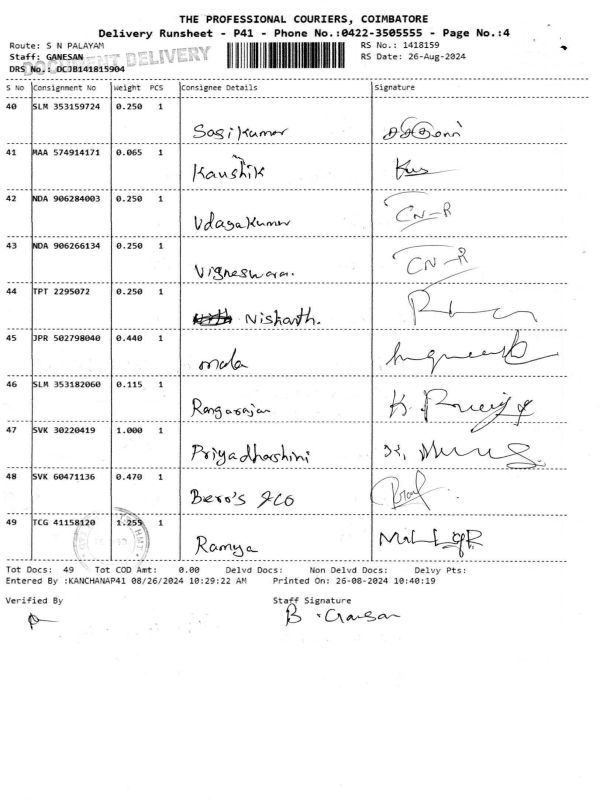 THE PROFESSIONAL COURIERS, COIMBATORE
Delivery Runsheet - P41 - Phone No.:0422-3505555 - Page No.:4
Route: S N PALAYAM RS No.: 1418159
Staff: GANESAN RS Date: 26-Aug-2024
DOCUMENT DELIVERY
DRS No.: DCJB141815904
S No Consignment No Weight PCS Consignee Details Signature
40 SLM 353159724 0.250 1
Sasikumar
41 MAA 574914171 0.065 1
Kaushik
42 NDA 906284003 0.250 1
Udayakumar CN-R
43 NDA 906266134 0.250 1
Vigneswaran. CN-R
44 TPT 2295072 0.250 1
Nishanth.
45 JPR 502798040 0.440 1
mala
46 SLM 353182060 0.115 1
Rangarajan
47 SVK 30220419 1.000 1
Priyadharshini
48 SVK 60471136 0.470 1
Bero's &CO
49 TCG 41158120 1.255 1
Ramya
Tot Docs: 49 Tot COD Amt: 0.00 Delvd Docs: Non Delvd Docs: Delvy Pts:
Entered By :KANCHANAP41 08/26/2024 10:29:22 AM Printed On: 26-08-2024 10:40:19
Verified By Staff Signature
B. Ganesan